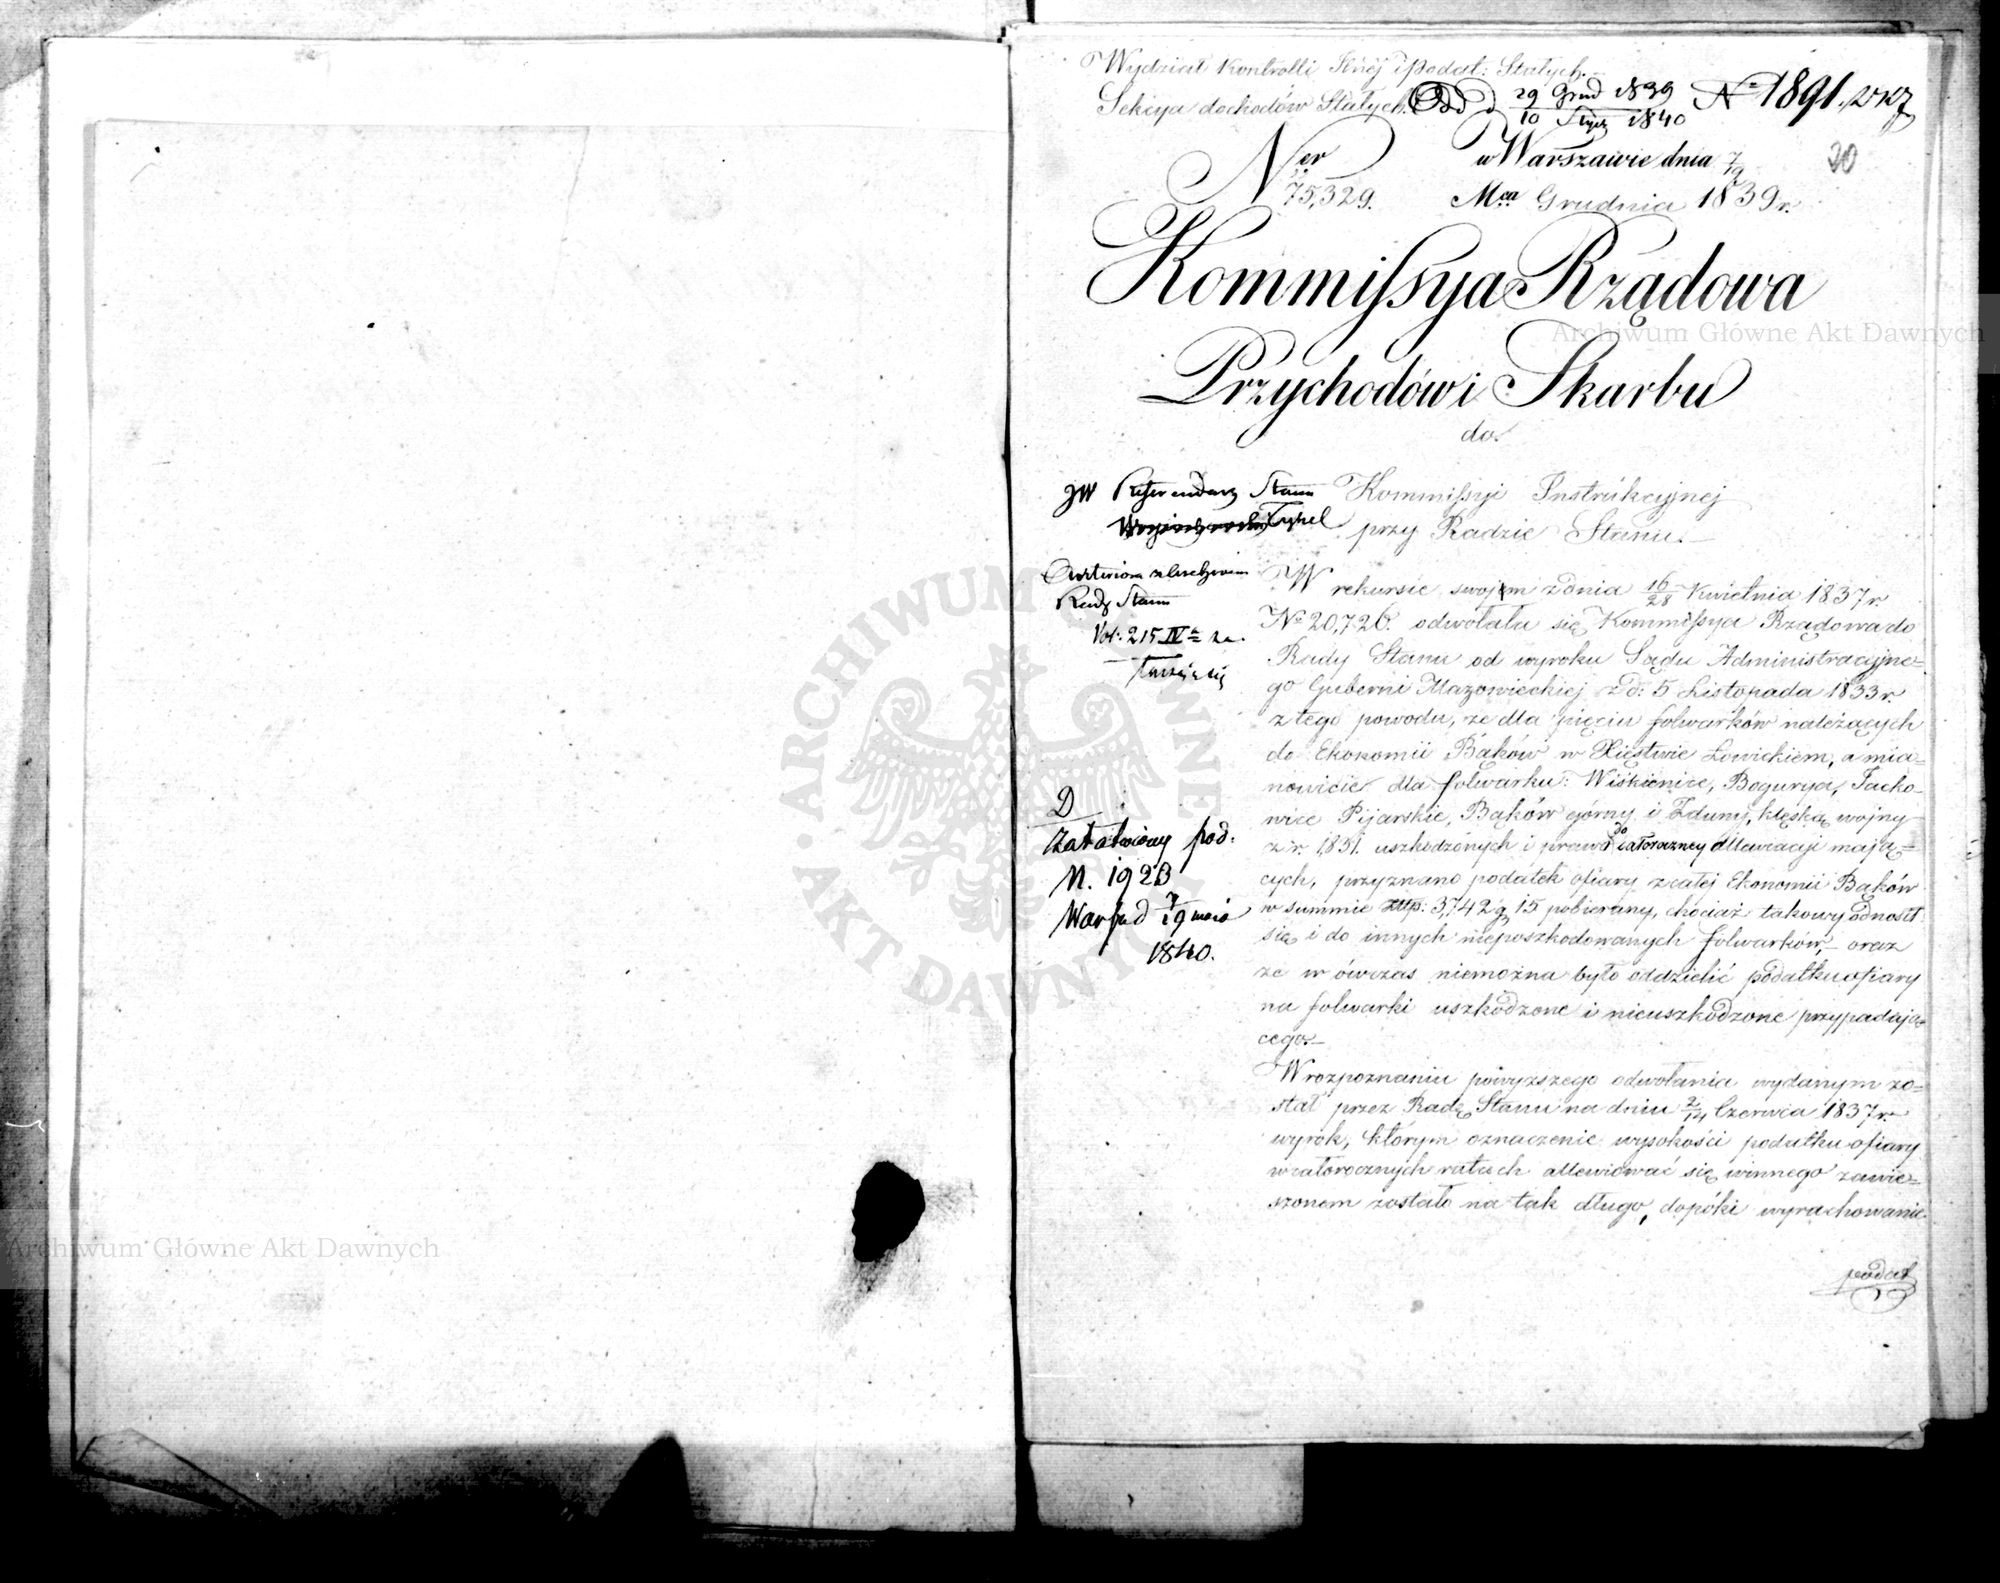 Wydział Kontrolli Skłej i Podat: Stałych.
Sekcya dochodów Stałych.
29 Grud 1839
10 Stycz 1840
No 1891.
Ner
75,329.
w Warszawie dnia 7/19
Mca Grudnia 1839 r.
20
Kommissya Rządowa
Przychodów i Skarbu
do
Kommissyi Instrukcyjnej
przy Radzie Stanu.
JW Referendarz Stanu
Tykel
Rady Stanu
Vol: 215 IV
D
Załatwiony pod.
N. 1923
Warsz d 7/19 maia
1840.
W rekursie swojem z dnia 16/28 Kwietnia 1837 r.
No 20,726. odwołała się Kommissya Rządowa do
Rady Stanu od wyroku Sądu Administracyjne=
go Guberni Mazowieckiej z d: 5 Listopada 1833 r.
z tego powodu, że dla pięciu folwarków należących
do Ekonomii Bąków w Xięstwie Łowickiem, a mia=
nowicie dla folwarku: Wiskienice, Boguryia, Jacko=
wice Pijarskie, Bąków górny i Zduny, klęską wojny
z r. 1831. uszkodzonych i prawo do całoroczney allewiacyi mają=
cych, przyznano podatek ofiary z całej Ekonomii Bąków
w summie złtp: 3,742 g 15 pobierany, chociaż takowy odnosił
się i do innych nieposzkodowanych folwarków, oraz
że w ówczas niemożna było oddzielić podatku ofiary
na folwarki uszkodzone i nieuszkodzone przypadają=
cego.
W rozpoznaniu powyższego odwołania wydanym zo=
stał przez Radę Stanu na dniu 2/14 Czerwca 1837 r.
wyrok, którym oznaczenie wysokości podatku ofiary
w całorocznych ratach allewiować się winnego zawie=
szonem zostało na tak długo, dopóki wyrachowanie
podat
Archiwum Główne Akt Dawnych
Archiwum Główne Akt Dawnych
ARCHIWUM GŁÓWNE AKT DAWNYCH